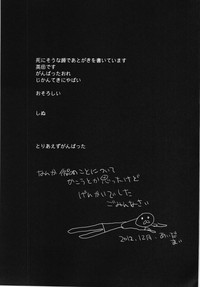 死にそうな時であとがきを書いています
黒田です
がんばったおれ
じかんてきにやばい
おそろしい
しぬ
とりあえずがんばった
なんか 個めことについて
かこうとか思ったけど
げんかいでした
ごみんなさい
2012.12.14